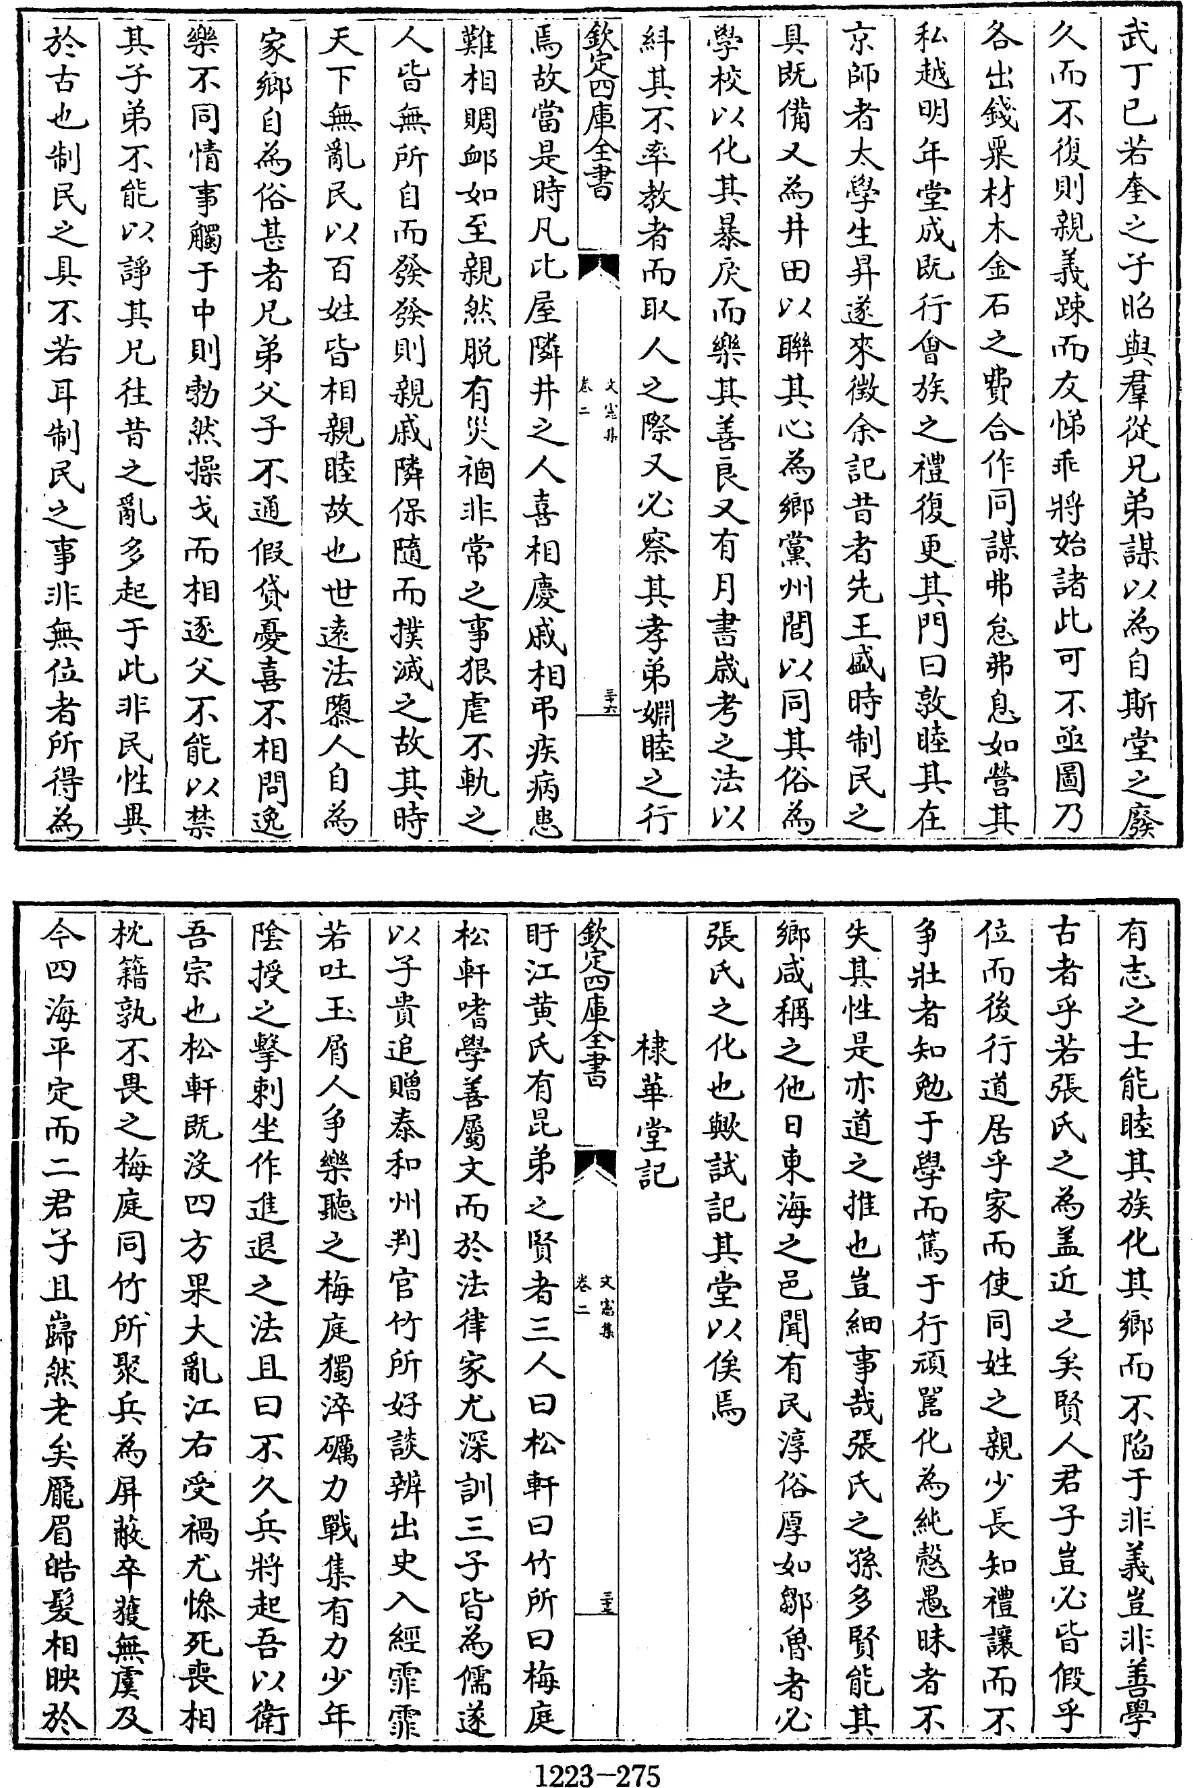 武丁已若奎之子昭與羣從兄弟謀以為自斯堂之廢
久而不復則親義踈而友悌乖將始諸此可不亟圖乃
各出錢粟材木金石之費合作同謀弗怠弗息如營其
私越明年堂成既行會族之禮復更其門曰敦睦其在
京師者太學生昇遂來徵余記昔者先王盛時制民之
具既備又為井田以聯其心為鄉黨州閭以同其俗為
學校以化其暴戾而樂其善良又有月書歲考之法以
糾其不率教者而取人之際又必察其孝弟婣睦之行
欽定四庫全書
文憲集
卷二
三十六
焉故當是時凡比屋隣井之人喜相慶戚相弔疾病患
難相賙䘏如至親然脱有災禍非常之事狠虐不軌之
人皆無所自而發發則親戚隣保隨而撲滅之故其時
天下無亂民以百姓皆相親睦故也世逺法隳人自為
家鄉自為俗甚者兄弟父子不通假貸憂喜不相問逸
樂不同情事觸于中則勃然操戈而相逐父不能以禁
其子弟不能以諍其兄往昔之亂多起于此非民性異
於古也制民之具不若耳制民之事非無位者所得為
有志之士能睦其族化其鄉而不陷于非義豈非善學
古者乎若張氏之為盖近之矣賢人君子豈必皆假乎
位而後行道居乎家而使同姓之親少長知禮讓而不
争壯者知勉于學而篤于行頑嚚化為純慤愚昧者不
失其性是亦道之推也豈細事哉張氏之孫多賢能其
鄉咸稱之他日東海之邑聞有民淳俗厚如鄒魯者必
張氏之化也歟試記其堂以俟焉
棣華堂記
欽定四庫全書
文憲集
卷二
三十七
盱江黄氏有昆弟之賢者三人曰松軒曰竹所曰梅庭
松軒嗜學善屬文而於法律家尤深訓三子皆為儒遂
以子貴追贈泰和州判官竹所好談辨出史入經霏霏
若吐玉屑人争樂聽之梅庭獨淬礪力戰集有力少年
陰授之擊刺坐作進退之法且曰不久兵將起吾以衛
吾宗也松軒既沒四方果大亂江右受禍尤慘死喪相
枕籍孰不畏之梅庭同竹所聚兵為屏蔽卒獲無虞及
今四海平定而二君子且巋然老矣龎眉皓髮相映於
1223-275